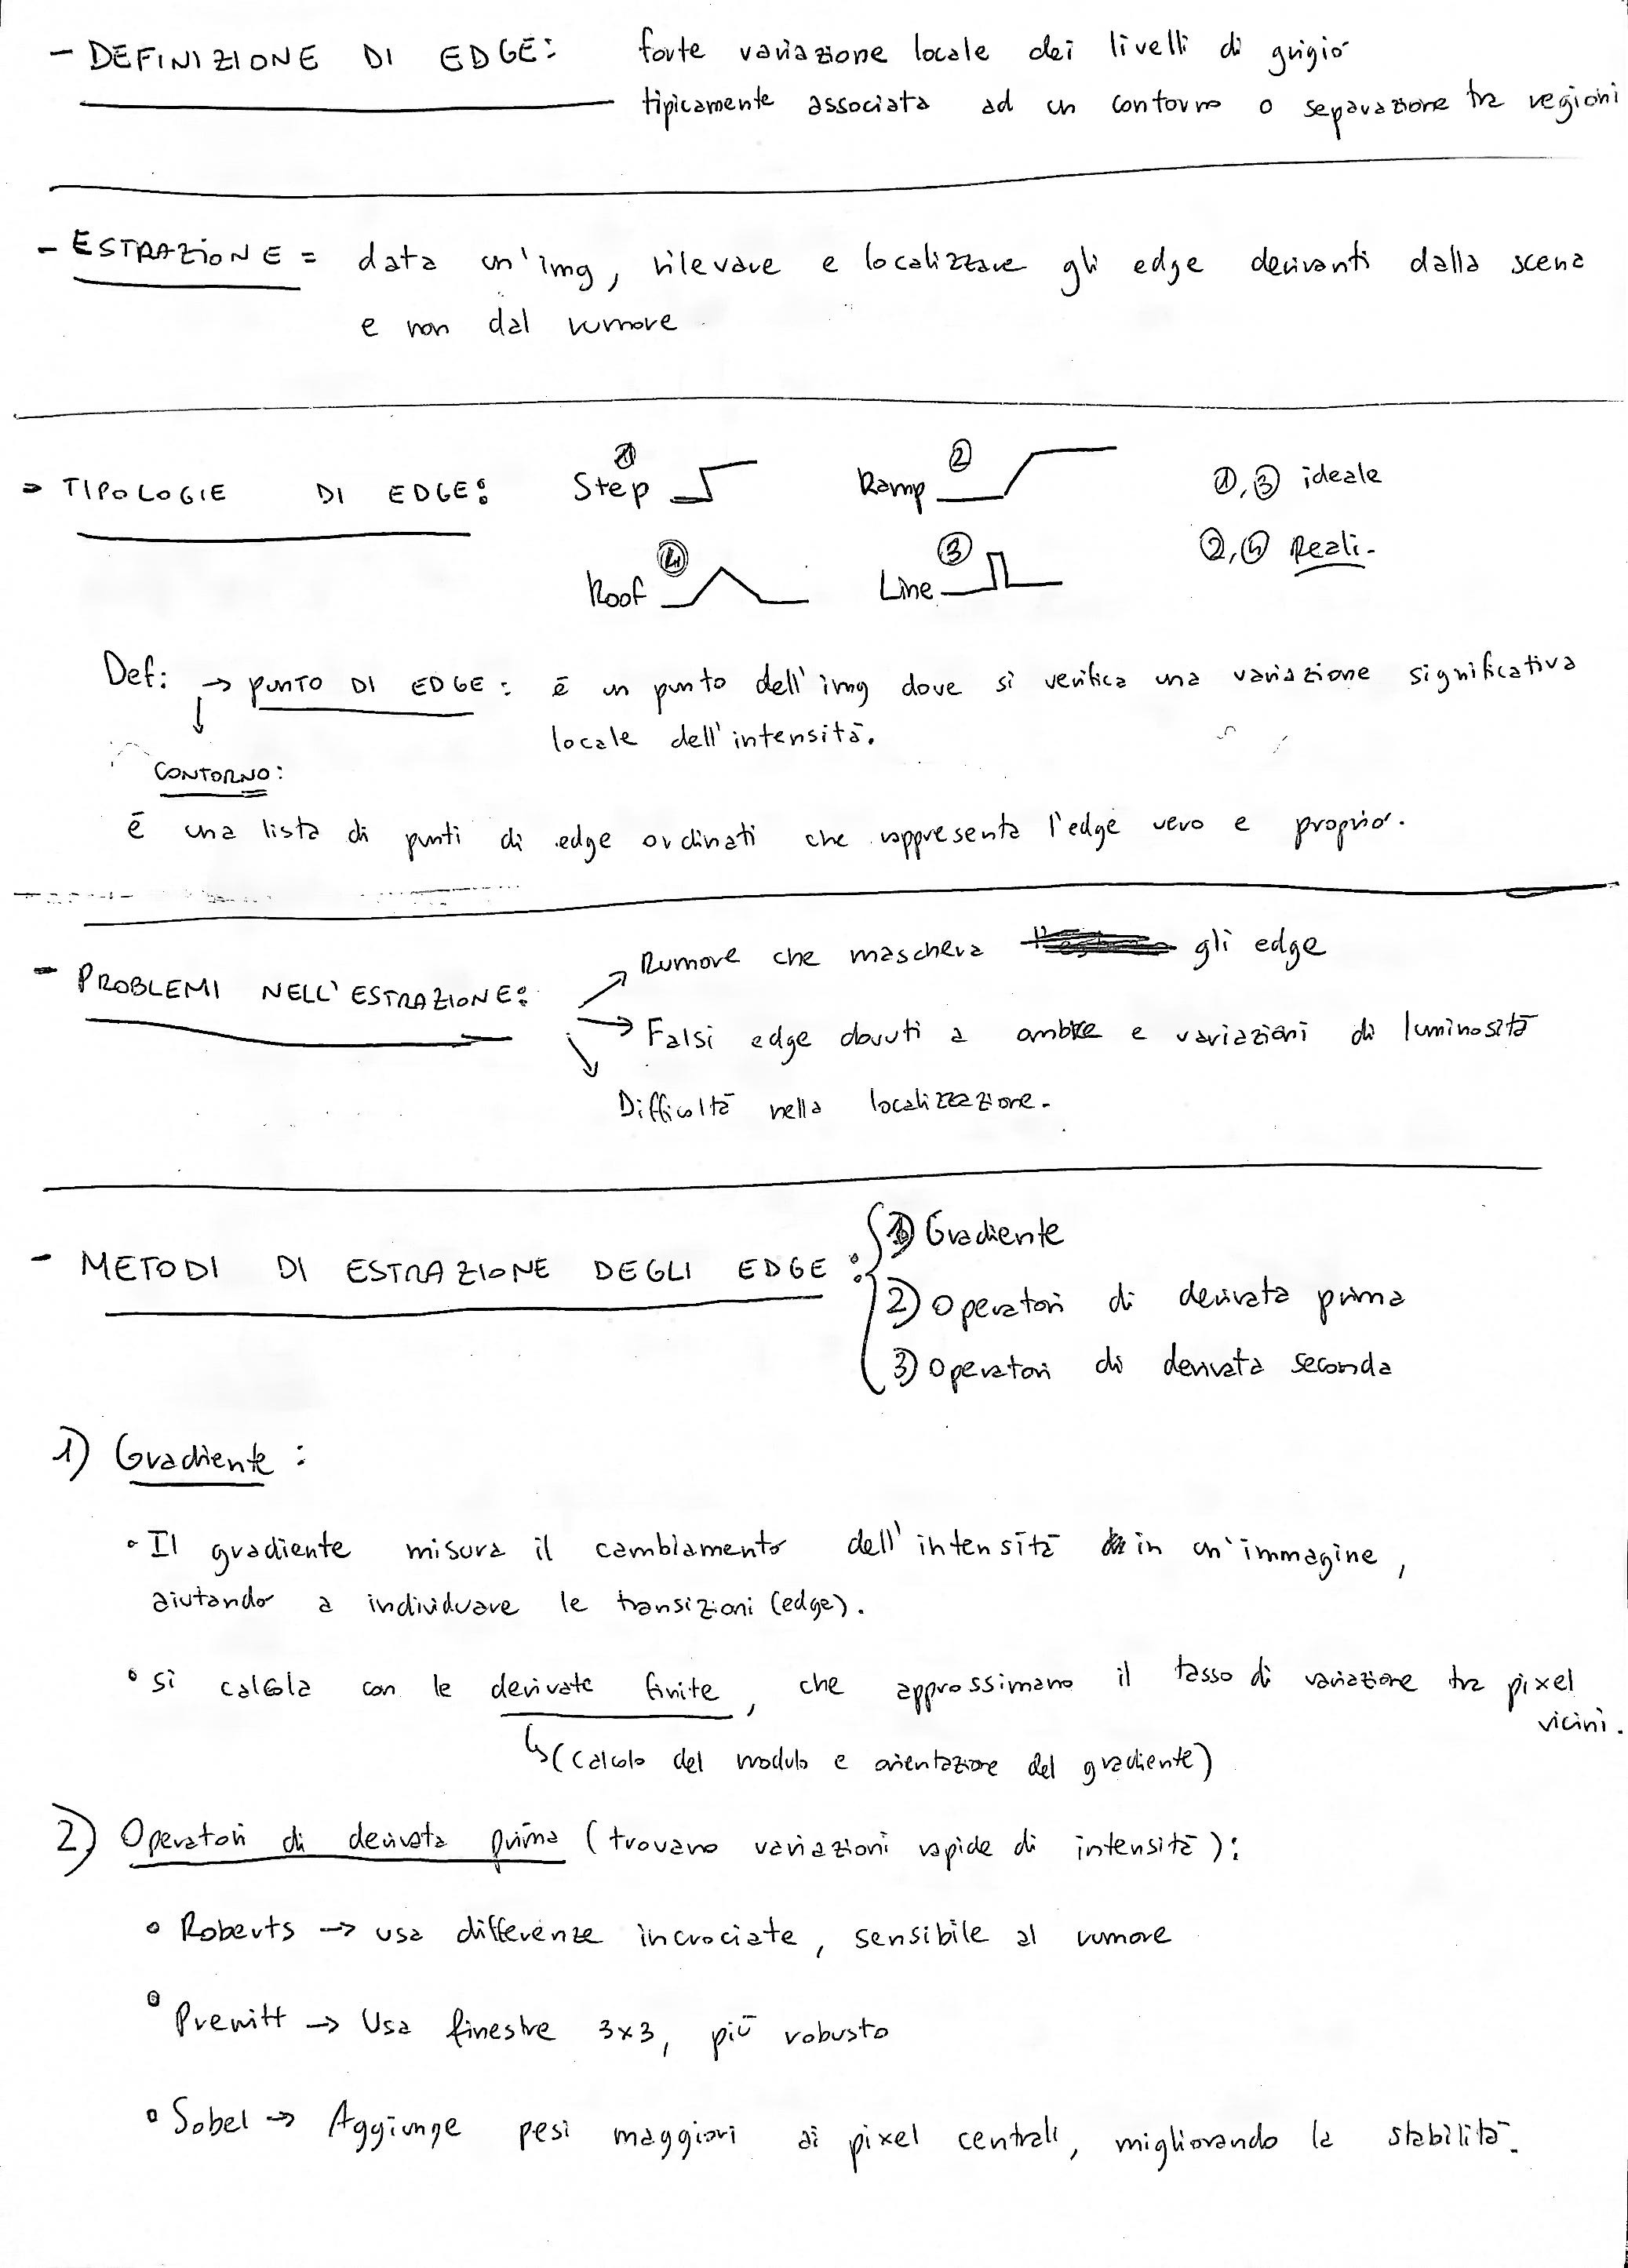 - DEFINIZIONE DI EDGE: forte variazione locale dei livelli di grigio
tipicamente associata ad un contorno o separazione tra regioni
- ESTRAZIONE = data un'img, rilevare e localizzare gli edge derivanti dalla scena
e non dal rumore
- TIPOLOGIE DI EDGE: Step ① Ramp ② ①,③ ideale
Roof ④ Line ③ ②,④ Reali-
Def: → PUNTO DI EDGE: è un punto dell'img dove si verifica una variazione significativa
↓ locale dell'intensità.
CONTORNO:
è una lista di punti di edge ordinati che rappresenta l'edge vero e proprio.
- PROBLEMI NELL'ESTRAZIONE: ↗ Rumore che maschera gli edge
→ Falsi edge dovuti a ombre e variazioni di luminosità
↘ Difficoltà nella localizzazione.
- METODI DI ESTRAZIONE DEGLI EDGE: { 1) Gradiente
2) Operatori di derivata prima
3) Operatori di derivata seconda
1) Gradiente:
• Il gradiente misura il cambiamento dell'intensità in un'immagine,
aiutando a individuare le transizioni (edge).
• Si calcola con le derivate finite, che approssimano il tasso di variazione tra pixel
vicini.
↳ (calcolo del modulo e orientazione del gradiente)
2) Operatori di derivata prima (trovano variazioni rapide di intensità):
• Roberts → usa differenze incrociate, sensibile al rumore
• Prewitt → Usa finestre 3x3, più robusto
• Sobel → Aggiunge pesi maggiori ai pixel centrali, migliorando la stabilità.